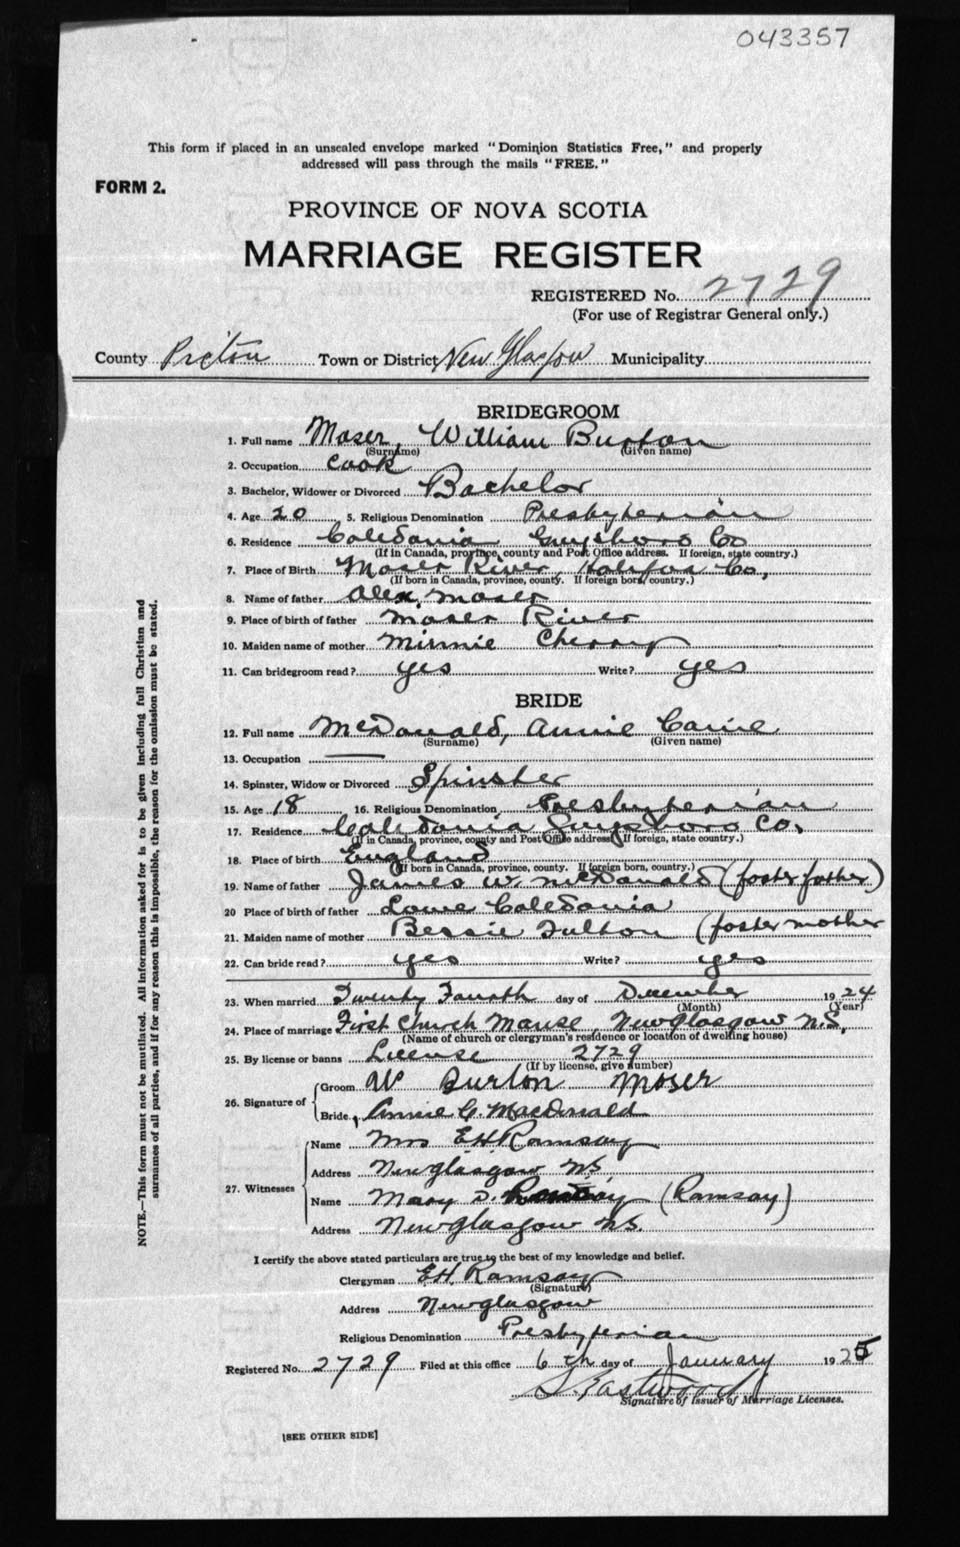 043357
This form if placed in an unsealed envelope marked "Dominion Statistics Free," and properly
addressed will pass through the mails "FREE."
FORM 2.
PROVINCE OF NOVA SCOTIA
MARRIAGE REGISTER
REGISTERED No. 2729
(For use of Registrar General only.)
County Pictou Town or District New Glasgow Municipality
BRIDEGROOM
1. Full name Moser, William Burton
(Surname) (Given name)
2. Occupation cook
3. Bachelor, Widower or Divorced Bachelor
4. Age 20 5. Religious Denomination Presbyterian
6. Residence Caledonia Guysboro Co
(If in Canada, province, county and Post Office address. If foreign, state country.)
7. Place of Birth Moser River, Halifax Co,
(If born in Canada, province, county. If foreign born, country.)
8. Name of father Alex, Moser
9. Place of birth of father Moser River
10. Maiden name of mother Minnie Cherry
11. Can bridegroom read? yes Write? yes
BRIDE
12. Full name McDonald, Annie Carrie
(Surname) (Given name)
13. Occupation —
14. Spinster, Widow or Divorced Spinster
15. Age 18 16. Religious Denomination Presbyterian
17. Residence Caledonia Guysboro Co,
(If in Canada, province, county and Post Office address. If foreign, state country.)
18. Place of birth England
(If born in Canada, province, county. If foreign born, country.)
19. Name of father James W. McDonald (foster father)
20 Place of birth of father Caledonia
21. Maiden name of mother Bessie Fulton (foster mother
22. Can bride read? yes Write? yes
23. When married Twenty Fourth day of December 1924
(Month) (Year)
24. Place of marriage First Church Manse, New Glasgow N.S,
(Name of church or clergyman's residence or location of dwelling house)
25. By license or banns License 2729
(If by license, give number)
26. Signature of
Groom W Burton Moser
Bride, Annie C. MacDonald
27. Witnesses
Name Mrs EH Ramsay
Address New glasgow NS
Name Mary D. (Ramsay)
Address New glasgow NS.
I certify the above stated particulars are true to the best of my knowledge and belief.
Clergyman EH. Ramsay
(Signature)
Address New glasgow
Religious Denomination Presbyterian
Registered No. 2729 Filed at this office 6th day of January 1925
Eastwood
Signature of Issuer of Marriage Licenses.
[SEE OTHER SIDE]
NOTE.—This form must not be mutilated. All information asked for is to be given including full Christian and
surnames of all parties, and if for any reason this is impossible, the reason for the omission must be stated.